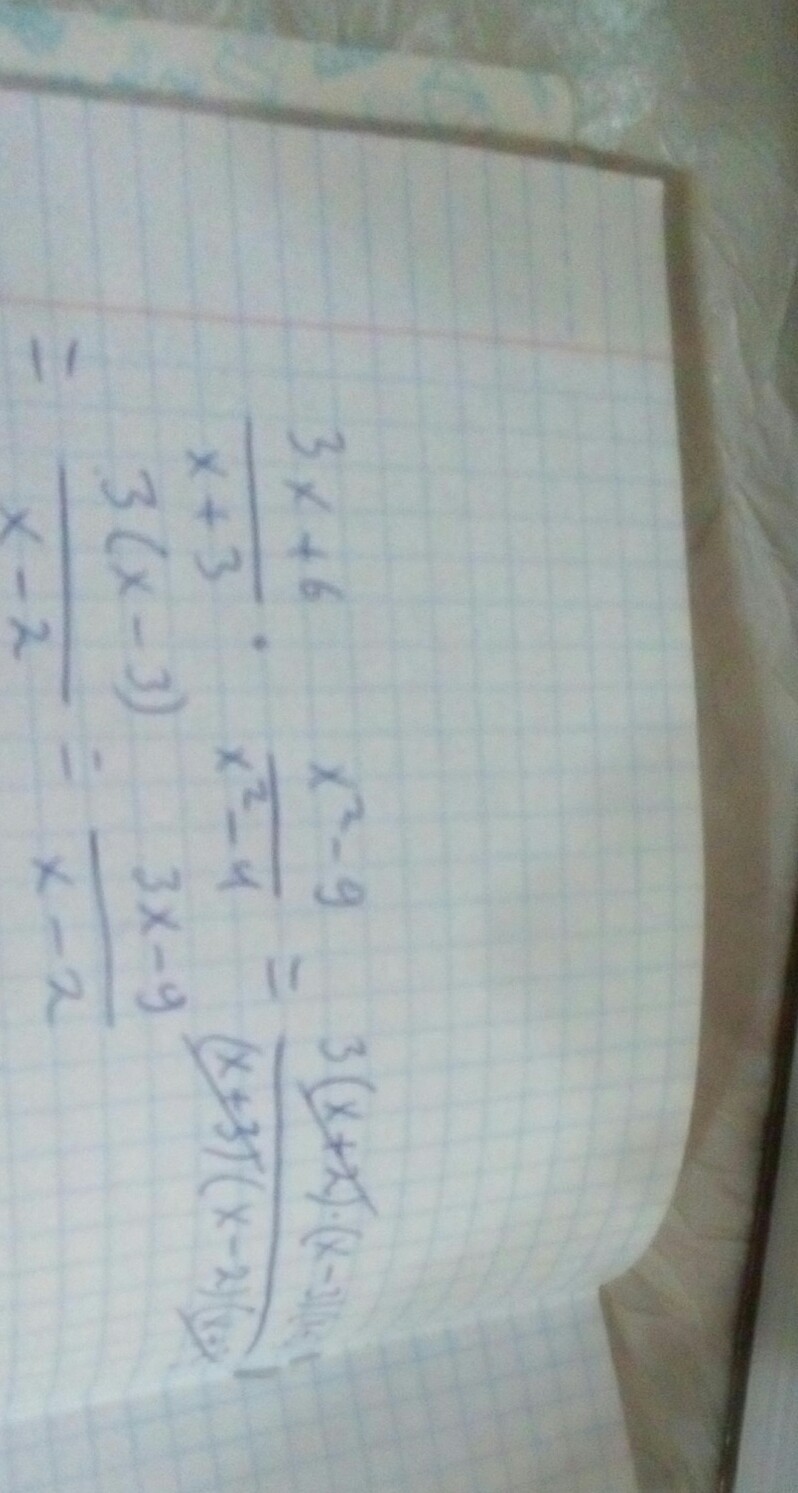 3x+6 / x+3 · x²-9 / x²-4 = 3(x+2)·(x-3)( / (x+3)(x-2)(
= 3(x-3) / x-2 = 3x-9 / x-2